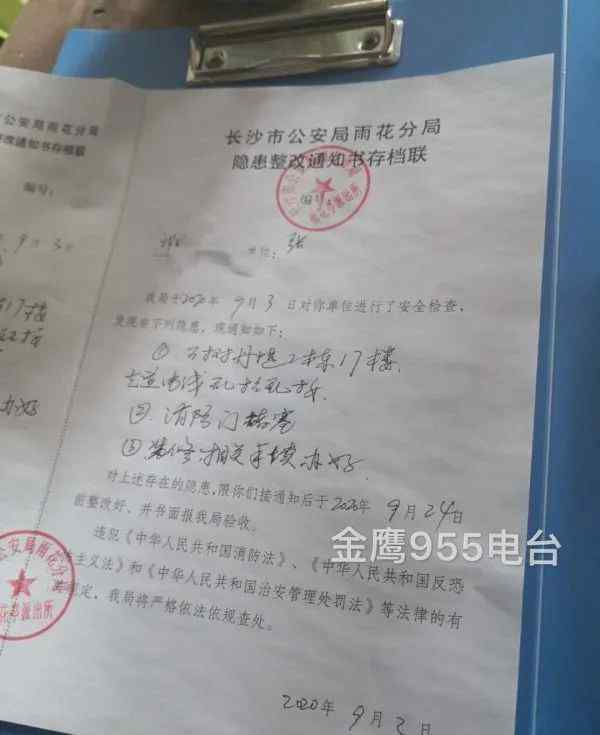 公安局雨花分局
改通知书存档联
编号：
9月3日
17楼
办好
长沙市公安局雨花分局
隐患整改通知书存档联
单位：张
我局于2020年9月3日对你单位进行了安全检查，
发现有下列隐患，现通知如下：
2栋17楼
乱拉乱
② 消防门堵塞
③ 装修相关手续办好
对上述存在的隐患，限你们接通知后于2020年9月24日
前整改好，并书面报我局验收。
违犯《中华人民共和国消防法》、《中华人民共和国反恐
主义法》和《中华人民共和国治安管理处罚法》等法律的有
规定，我局将严格依法依规查处。
2020年9月2日
公安局雨花分
派出所
派出所
金鹰955电台